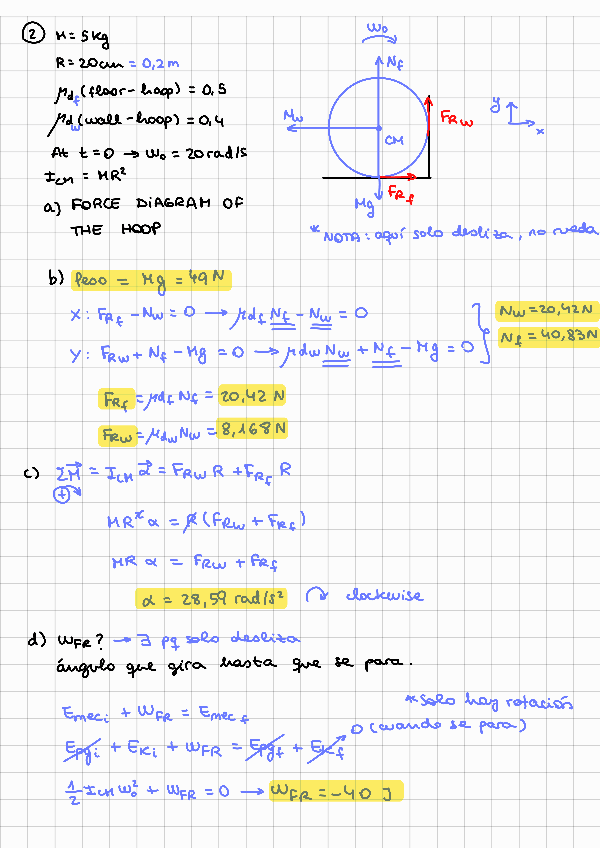 2 M = 5kg
R = 20cm = 0,2m
μdf (floor-hoop) = 0,5
μdw (wall-hoop) = 0,4
At t=0 → ω₀ = 20 rad/s
I_CM = MR²
a) FORCE DIAGRAM OF
THE HOOP
ω₀
N_f
N_w
F_RW
CM
F_Rf
Mg
y
x
*NOTA: aquí solo desliza, no rueda
b) Peso = Mg = 49N
X: F_Rf - N_w = 0 → μdf N_f - N_w = 0
Y: F_RW + N_f - Mg = 0 → μdw N_w + N_f - Mg = 0
N_w = 20,42N
N_f = 40,83N
F_Rf = μdf N_f = 20,42 N
F_RW = μdw N_w = 8,168 N
c) ΣM⃗ = I_CM α⃗ = F_RW R + F_Rf R
+
MR² α = R (F_RW + F_Rf)
MR α = F_RW + F_Rf
α = 28,59 rad/s² clockwise
d) W_FR? → ∃ pq solo desliza
ángulo que gira hasta que se para.
*solo hay rotación
E_meci + W_FR = E_mecf
0 (cuando se para)
E_pgi + E_ki + W_FR = E_pgf + E_kf
½ I_CM ω₀² + W_FR = 0 → W_FR = -40 J